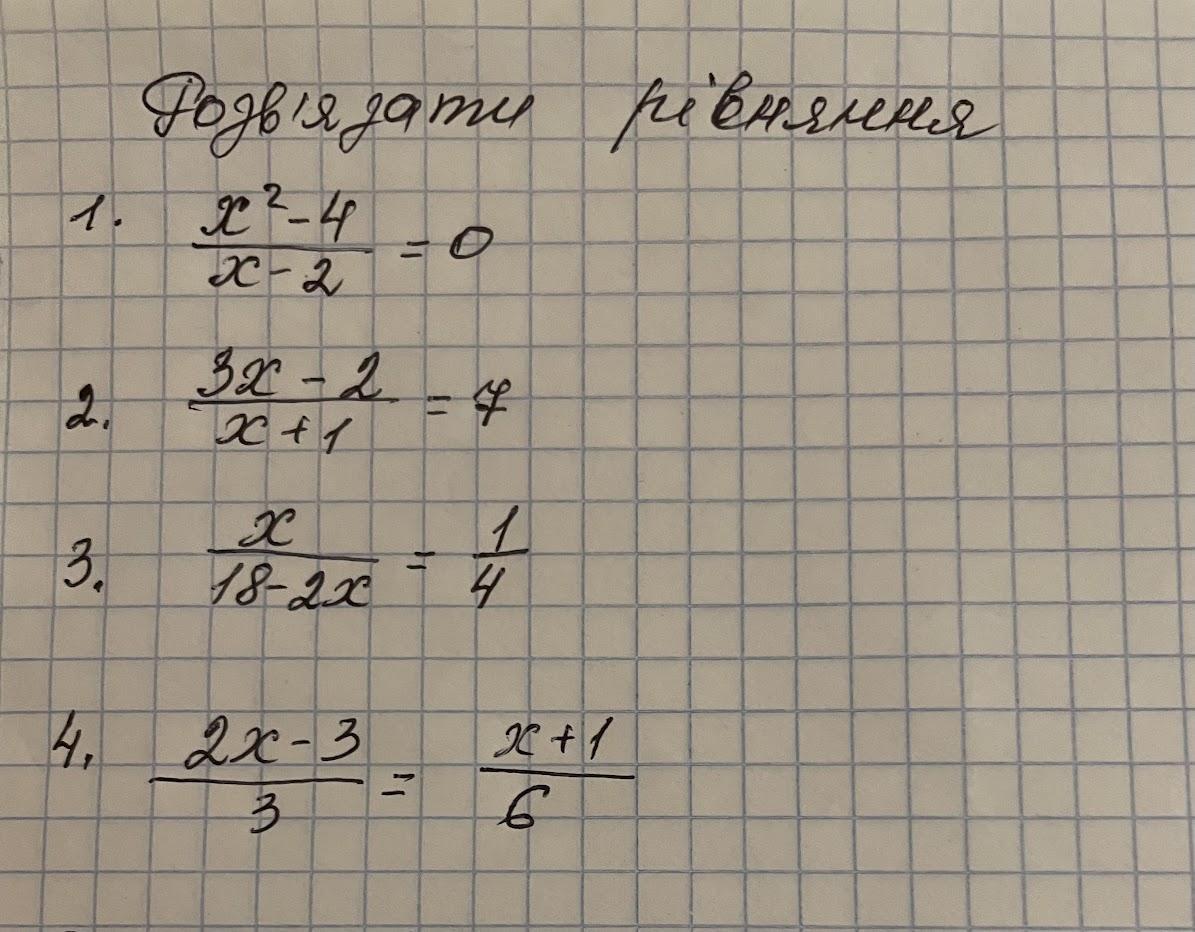 Розв'язати рівняння
1. (x² - 4)/(x - 2) = 0
2. (3x - 2)/(x + 1) = 7
3. x/(18 - 2x) = 1/4
4. (2x - 3)/3 = (x + 1)/6